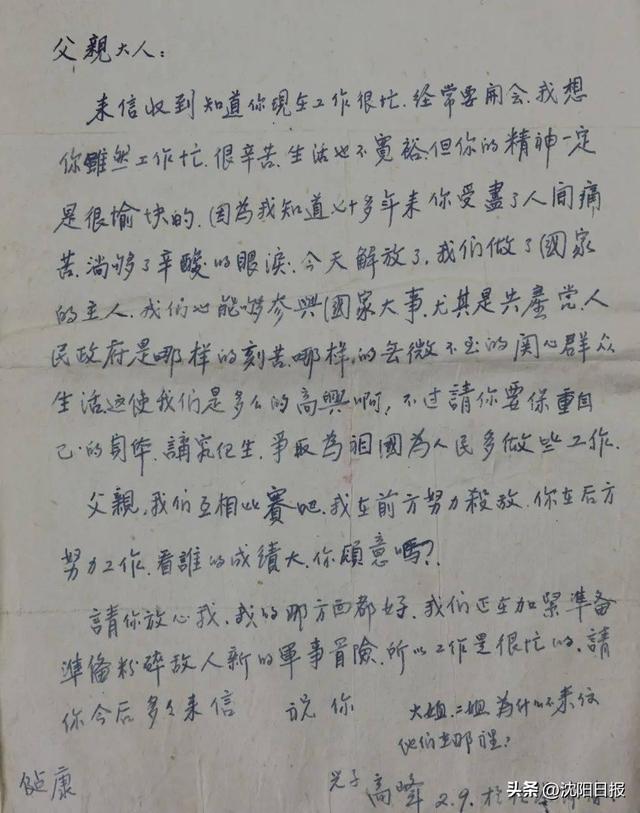 父親大人：
来信收到知道你現在工作很忙.経常要開会.我想
你雖然工作忙.很辛苦.生活也不寬裕.但你的精神一定
是很愉快的.因為我知道七十多年来你受盡了人间痛
苦.淌够了辛酸的眼淚.今天解放了.我们做了國家
的主人.我们也能够参與國家大事.尤其是共產党.人
民政府是那样的刻苦.那样的无微不至的関心群众
生活这使我们是多么的高興啊，不过請你要保重自
己的身体.講究卫生.爭取為祖國為人民多做些工作.
父親,我们互相比賽吧.我在前方努力殺敌.你在后方
努力工作.看誰的成績大.你願意嗎?
請你放心我.我的那方面都好.我们正在加緊準备
準备粉碎敌人新的軍事冒險.所以工作是很忙的.請
你今后多多来信 祝你
大姐.二姐為什么不来信
他们在那裡?
健康
兒子
高峰 2.9.於
头条 @沈阳日报